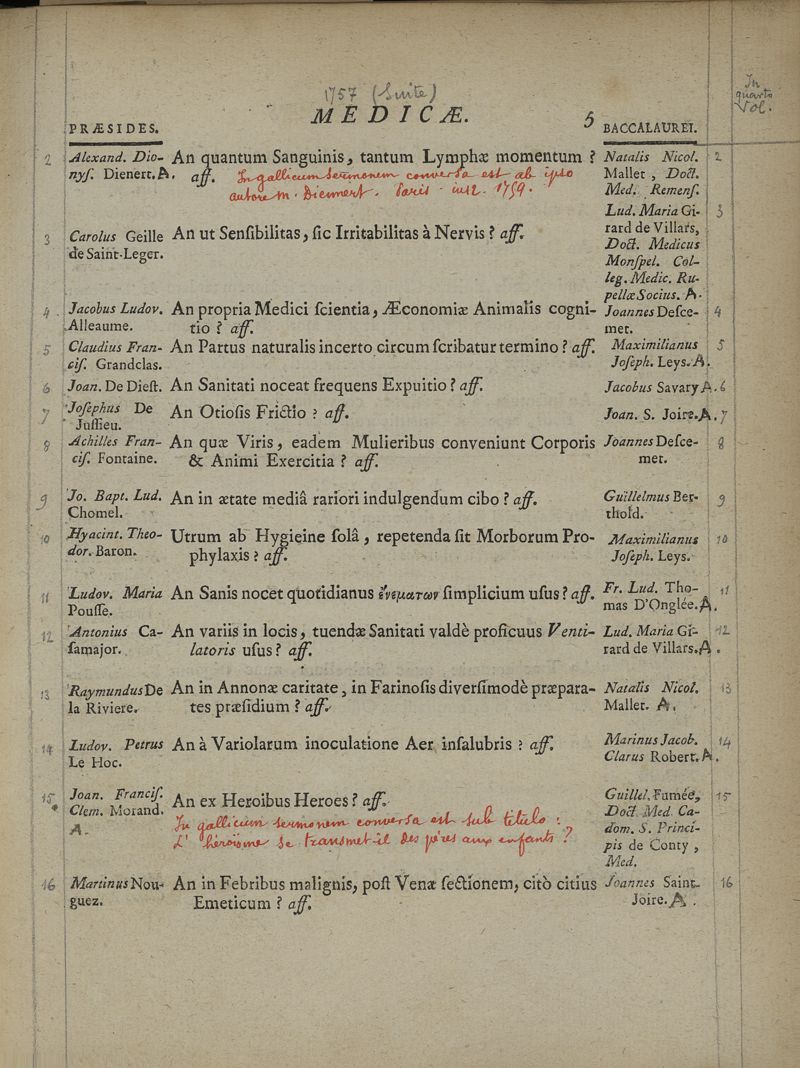 1757 (Suite)
In quarto Vol.
MEDICÆ. 5
PRÆSIDES. BACCALAUREI.
2 Alexand. Dio- An quantum Sanguinis, tantum Lymphæ momentum ? Natalis Nicol. 2
nyſ. Dienert. A. aff. In gallicum sermonem conversa est ab ipso Mallet, Doct.
autore m. Diennert. Paris. in-12. 1759. Med. Remenſ.
Lud. Maria Gi- 3
3 Carolus Geille An ut Senſibilitas, ſic Irritabilitas à Nervis ? aff. rard de Villars,
de Saint-Leger. Doct. Medicus
Monſpel. Col-
leg. Medic. Ru-
pellæ Socius. A.
4 Jacobus Ludov. An propria Medici ſcientia, Æconomiæ Animalis cogni- Joannes Deſce- 4
Alleaume. tio ? aff. met.
5 Claudius Fran- An Partus naturalis incerto circumſcribatur termino ? aff. Maximilianus 5
ciſ. Grandclas. Joſeph. Leys. A.
6 Joan. De Dieſt. An Sanitati noceat frequens Expuitio ? aff. Jacobus Savary A. 6
7 Joſephus De An Otioſis Frictio ? aff. Joan. S. Joire. A. 7
Juſſieu.
8 Achilles Fran- An quæ Viris, eadem Mulieribus conveniunt Corporis Joannes Deſce- 8
ciſ. Fontaine. & Animi Exercitia ? aff. met.
9 Jo. Bapt. Lud. An in ætate mediâ rariori indulgendum cibo ? aff. Guillelmus Ber- 9
Chomel. thold.
10 Hyacint. Theo- Utrum ab Hygieine ſolâ, repetenda ſit Morborum Pro- Maximilianus 10
dor. Baron. phylaxis ? aff. Joſeph. Leys.
11 Ludov. Maria An Sanis nocet quotidianus ἐνεματων ſimplicium uſus ? aff. Fr. Lud. Tho- 11
Pouſſe. mas D'Onglée. A.
12 Antonius Ca- An variis in locis, tuendæ Sanitati valdè proficuus Venti- Lud. Maria Gi- 12
ſamajor. latoris uſus ? aff. rard de Villars. A.
13 Raymundus De An in Annonæ caritate, in Farinoſis diverſimodè præpara- Natalis Nicol. 13
la Riviere. tes præſidium ? aff. Mallet. A.
14 Ludov. Petrus An à Variolarum inoculatione Aer inſalubris ? aff. Marinus Jacob. 14
Le Hoc. Clarus Robert. A.
15 Joan. Franciſ. An ex Heroibus Heroes ? aff. Guillel. Fumée, 15
* Clem. Morand. In gallicum sermonem conversa est sub titulo : Doct. Med. Ca-
A. L'héroïsme se transmet-il des pères aux enfants ? dom. S. Princi-
pis de Conty,
Med.
16 Martinus Nou- An in Febribus malignis, poſt Venæ ſectionem, citò citius Joannes Saint- 16
guez. Emeticum ? aff. Joire. A.